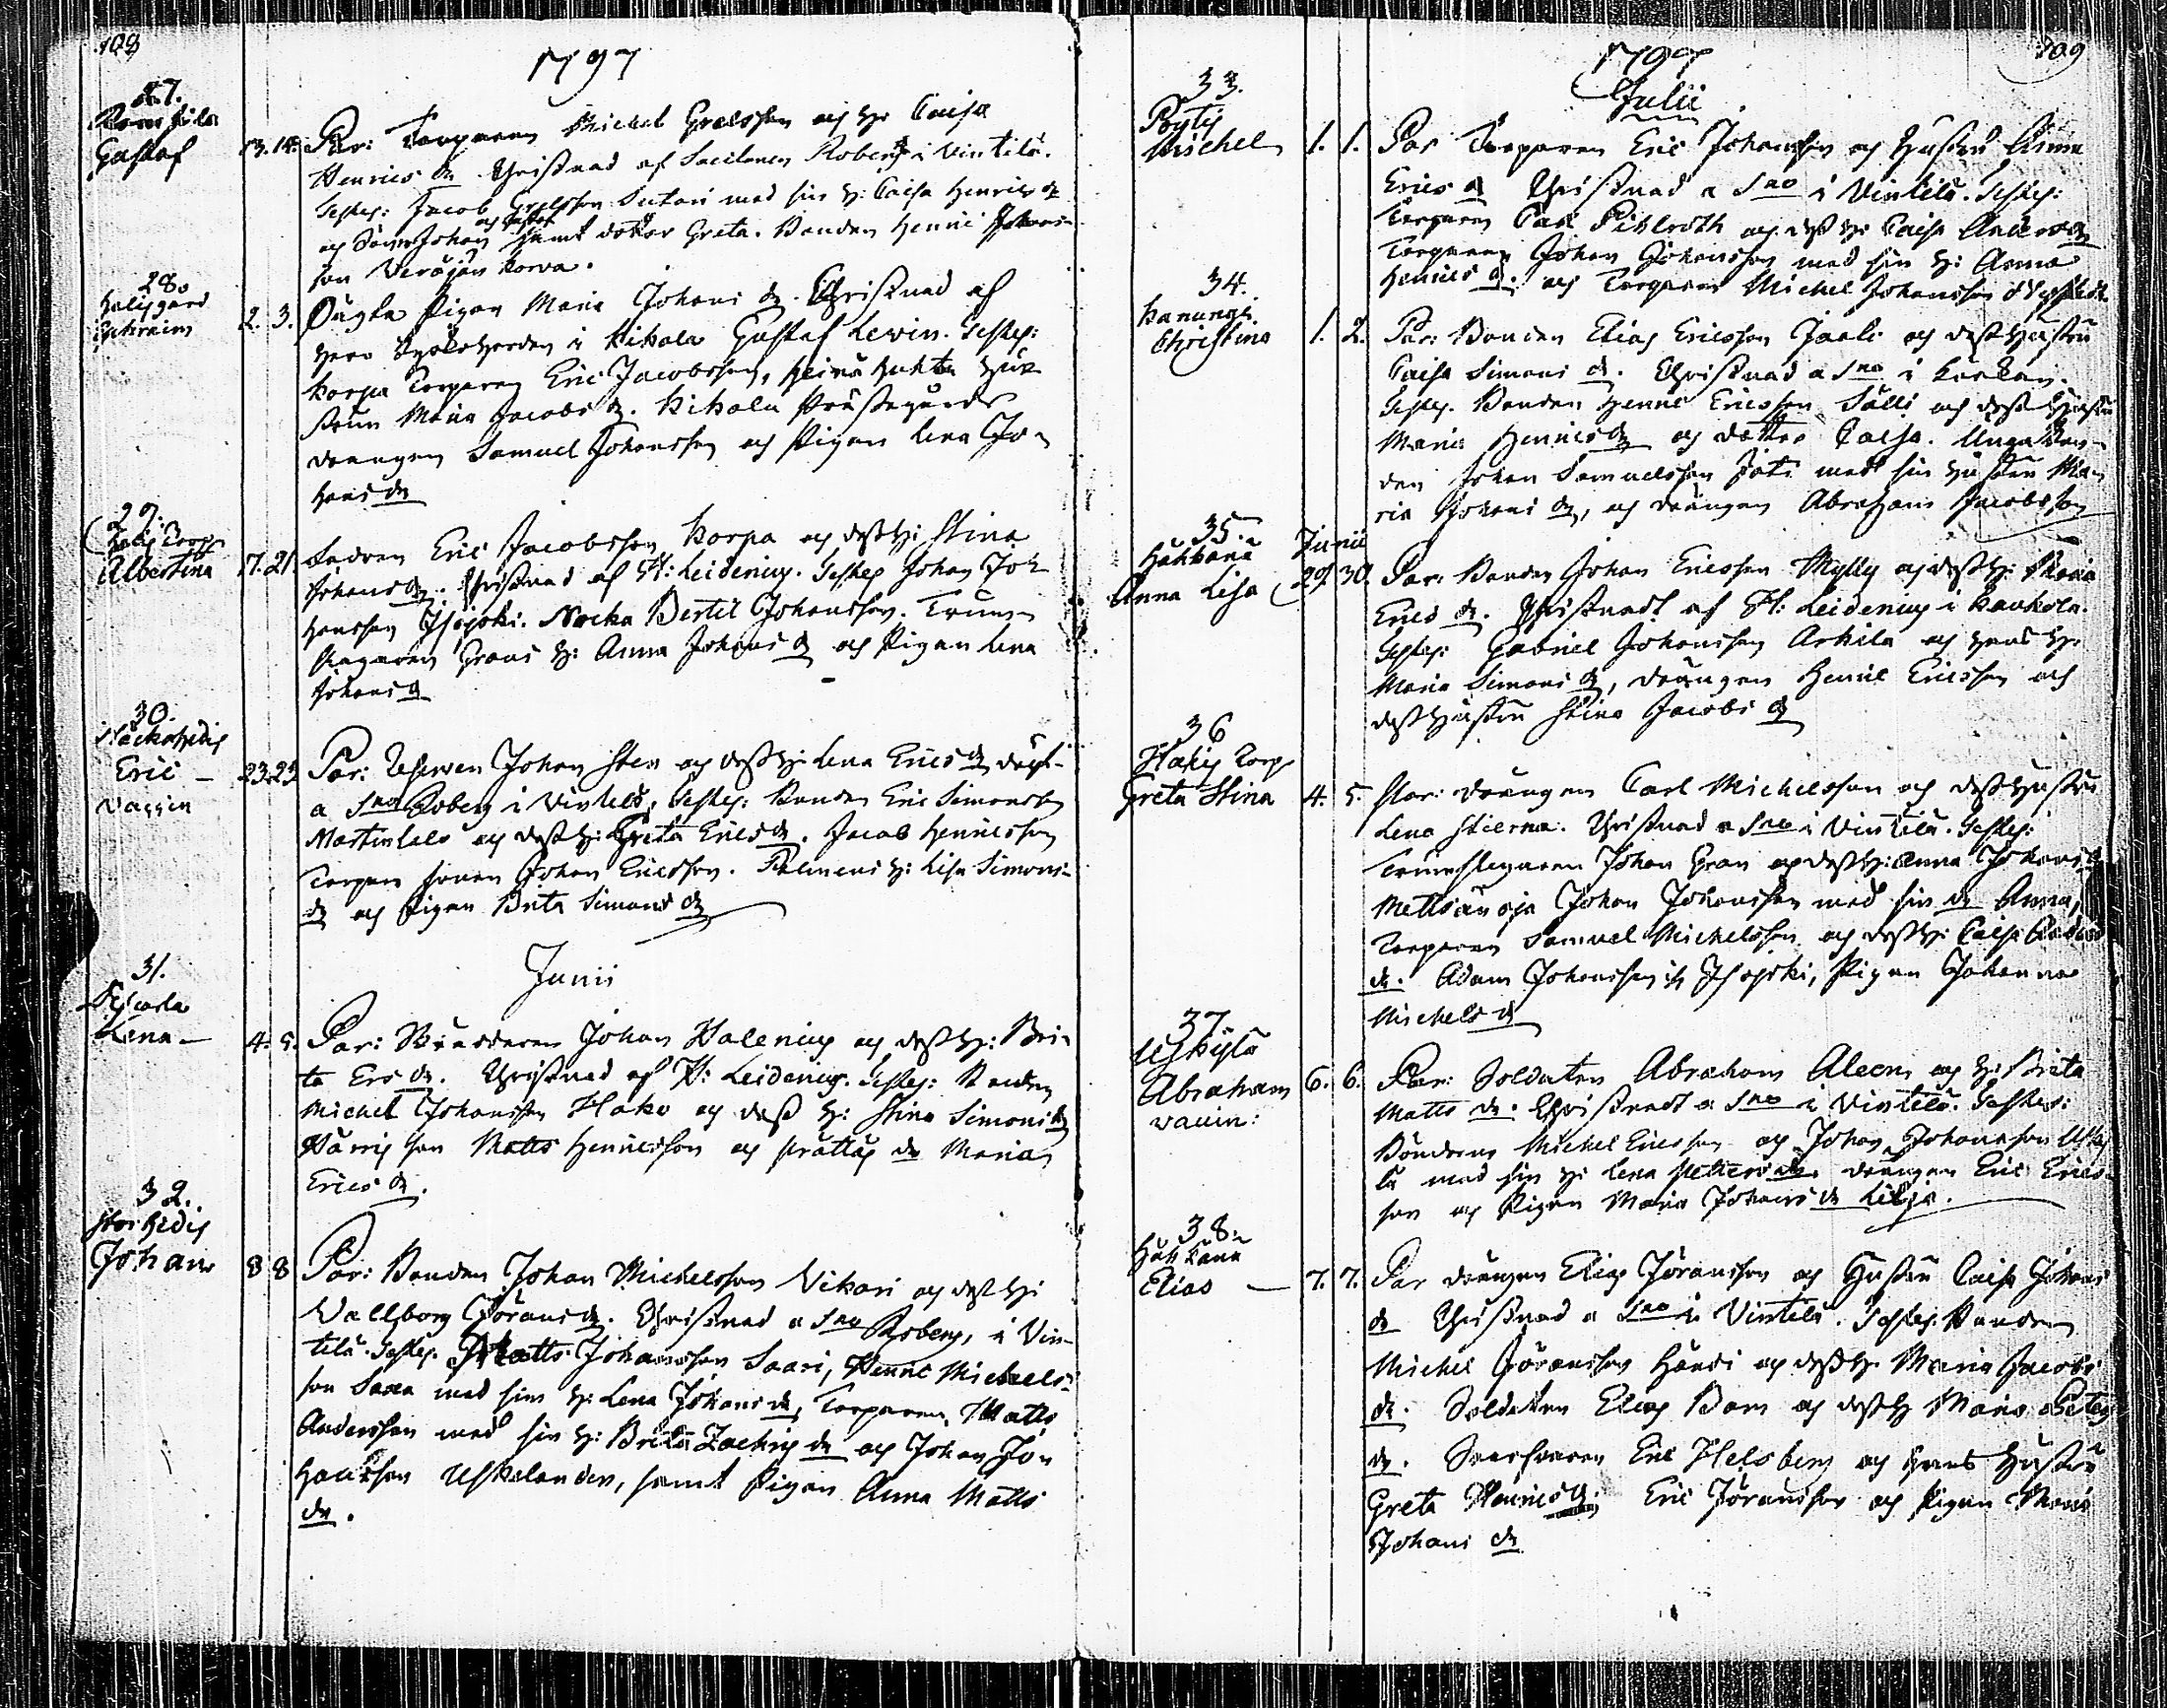 108
1797
27.
Gustaf
13. 14. Par: Torparen Michel Grelsson och h: Caisa
Henrics dr Christnad af Sacellanen Roberg i Vintilä.
Testes: Jacob Grelsson Sutari med sin h: Caisa Henrics dr
och Sonen Johan och Gustaf samt dotter Greta. Bonden Henric Johans-
son Veräjän korva.
28.
Ephraim
2. 3. Oägta Pigan Maria Johans dr. Christnad af
Herr Kyrkoherden i Kikala Gustaf Levin. Testes:
Korpa Torparen Eric Jacobsson, Heinä huhta hus-
trun Maria Jacobs dr. Kikala Prästegårds
drengen Samuel Johansson och Pigan Lena Jo-
hans dr
29.
Halis Torp
Albertina
17. 21. Eric Jacobsson Korpa och dess h: Stina
Johans dr. Christnad af H: Leidenius. Testes Johan Joh
hansson Isojoki. Nocka Bertil Johansson. Trum-
slagaren Grans h: Anna Johans dr och Pigan Lena
Johans dr
30.
Eric —
23. 23. Par: Johan Sten och dess h: Lena Erics dr döpt
a Sno Roberg i Vintelä, Testes: Bonden Eric Simonsson
Martinkelo och dess h: Greta Erics dr. Jacob Henricsson
Torpare sonen Johan Ericsson. h: Lisa Simons-
dr och Pigan Brita Simons dr
Junii
31.
Lena —
4. 5. Par: Johan Halenius och dess h: Bri-
ta Ers dr. Christnad af H: Leidenius. Testes: Bonden
Michel Johansson Hako och dess h: Stina Simons dr
son Matts Henricsson och dr Maria
Erics dr.
32.
Johan
8 8 Par: Bonden Johan Michelsson Vikari och dess h:
Vallborg Jörans dr. Christnad a Sno Roberg, i Vin-
tilä. Testes. Matts Johansson Saari, Henric Michels-
son Saxa med sin h: Lena Johans dr, Torparen, Matts
Andersson med sin h: Brita Zachris dr och Johan Jo-
hansson Uskelander, samt Pigan Anna Matts
dr.
109
1797
Julii
33.
Pöytis
Michel
1. 1. Par Torparen Eric Johansson och Hustru Anna
Erics dr Christnad a Sno i Vintilä. Testes:
Torparen Carl Pihlroth och dess h: Caisa Anders dr
Torparen Johan Johansson med sin h: Anna
Henrics dr. och Torparen Michel Johansson
34.
Christina
1. 2. Par: Bonden Elias Ericsson Jaali och dess Hustru
Caisa Simons dr. Christnad a Sno i
Testes. Bonden Henric Ericsson Sälli och dess Hustru
Maria Henrics dr och dotter Caisa. Unga Bon-
den Johan Samuelsson Jati med sin hustru Ma-
ria Johans dr, och drängen Abraham Jacobsson
35.
Hakkana
Anna Lisa
Junii
29. 30. Par: Bonden Johan Ericsson Mylly och dess h: Maria
Erics dr. Christnadt af H: Leidenius i Kaukola.
Testes: Gabriel Johansson Arkila och hans h:
Maria Simons dr, drängen Henric Ericsson och
dess Hustru Stina Jacobs dr
36
Halis Torp
Greta Stina
4. 5. Par: drängen Carl Michelsson och dess Hustru
Lena Stierna. Christnad a Sno i Vintilä. Testes:
Trumslagaren Johan Gran och dess h: Anna Johans dr
Metsänoja Johan Johansson med sin dr Anna,
Torparen Samuel Michelsson och dess h: Caisa
dr. Adam Johansson i Isojoki, Pigan Johanna
Michels dr
37.
Uskylä
Abraham
vaccin:
6. 6. Par: Soldaten Abraham Alcen och h: Brita
Matts dr. Christnadt a Sno i Vintelä. Testes:
Bönderne Michel Ericsson och Johan Johansson Usky-
lä med sin h: Lena Petters dr drängen Eric Erics-
son och Pigan Maria Johans dr Lilja.
38.
Hakkana
Elias —
7. 7. Par drängen Elias Jöransson och Hustru Caisa Johans
dr Christnad a Sno i Vintelä. Testes. Bonden
Michel Jöransson Händi och dess h: Maria Jacobs
dr. Soldaten Elias Bom och dess h Maria Peters
dr. Eric Helsberg och hans Hustru
Greta Henrics dr, Eric Jöransson och Pigan Maria
Johans dr